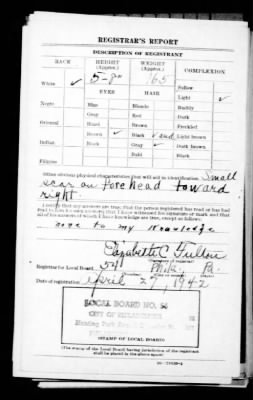 REGISTRAR'S REPORT
DESCRIPTION OF REGISTRANT
RACE HEIGHT (Approx.) WEIGHT (Approx.) COMPLEXION
White ✓ 5-8" 165 Sallow
EYES HAIR Light ✓
Negro Blue Blonde Ruddy
Gray Red Dark
Oriental Hazel Brown Freckled
Brown ✓ Black and Light brown
Indian Black Gray ✓ Dark brown
Bald Black
Filipino
Other obvious physical characteristics that will aid in identification Small
scar on forehead toward
right.
I certify that my answers are true; that the person registered has read or has had
read to him his own answers; that I have witnessed his signature or mark and that
all of his answers of which I have knowledge are true, except as follows:
none to my knowledge
Elizabeth C.
Registrar for Local Board 54 Phila. Pa.
Date of registration April 27, 1942
LOCAL BOARD NO.
CITY OF PHILADELPHIA
STAMP OF LOCAL BOARD
(The stamp of the Local Board having jurisdiction of the registrant
shall be placed in the above space)